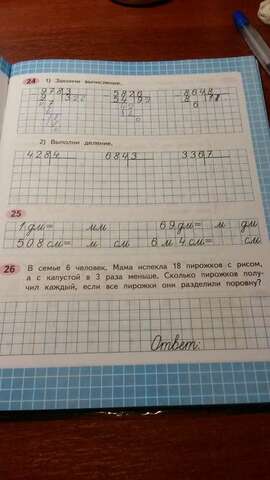 24 1) Закончи вычисления.
2) Выполни деление.
428 4 684 3 336 7
25
1 дм= мм 69 дм= м дм
508 см= м см 6 м 4 см= см
26 В семье 6 человек. Мама испекла 18 пирожков с рисом,
а с капустой в 3 раза меньше. Сколько пирожков полу-
чил каждый, если все пирожки они разделили поровну?
Ответ: